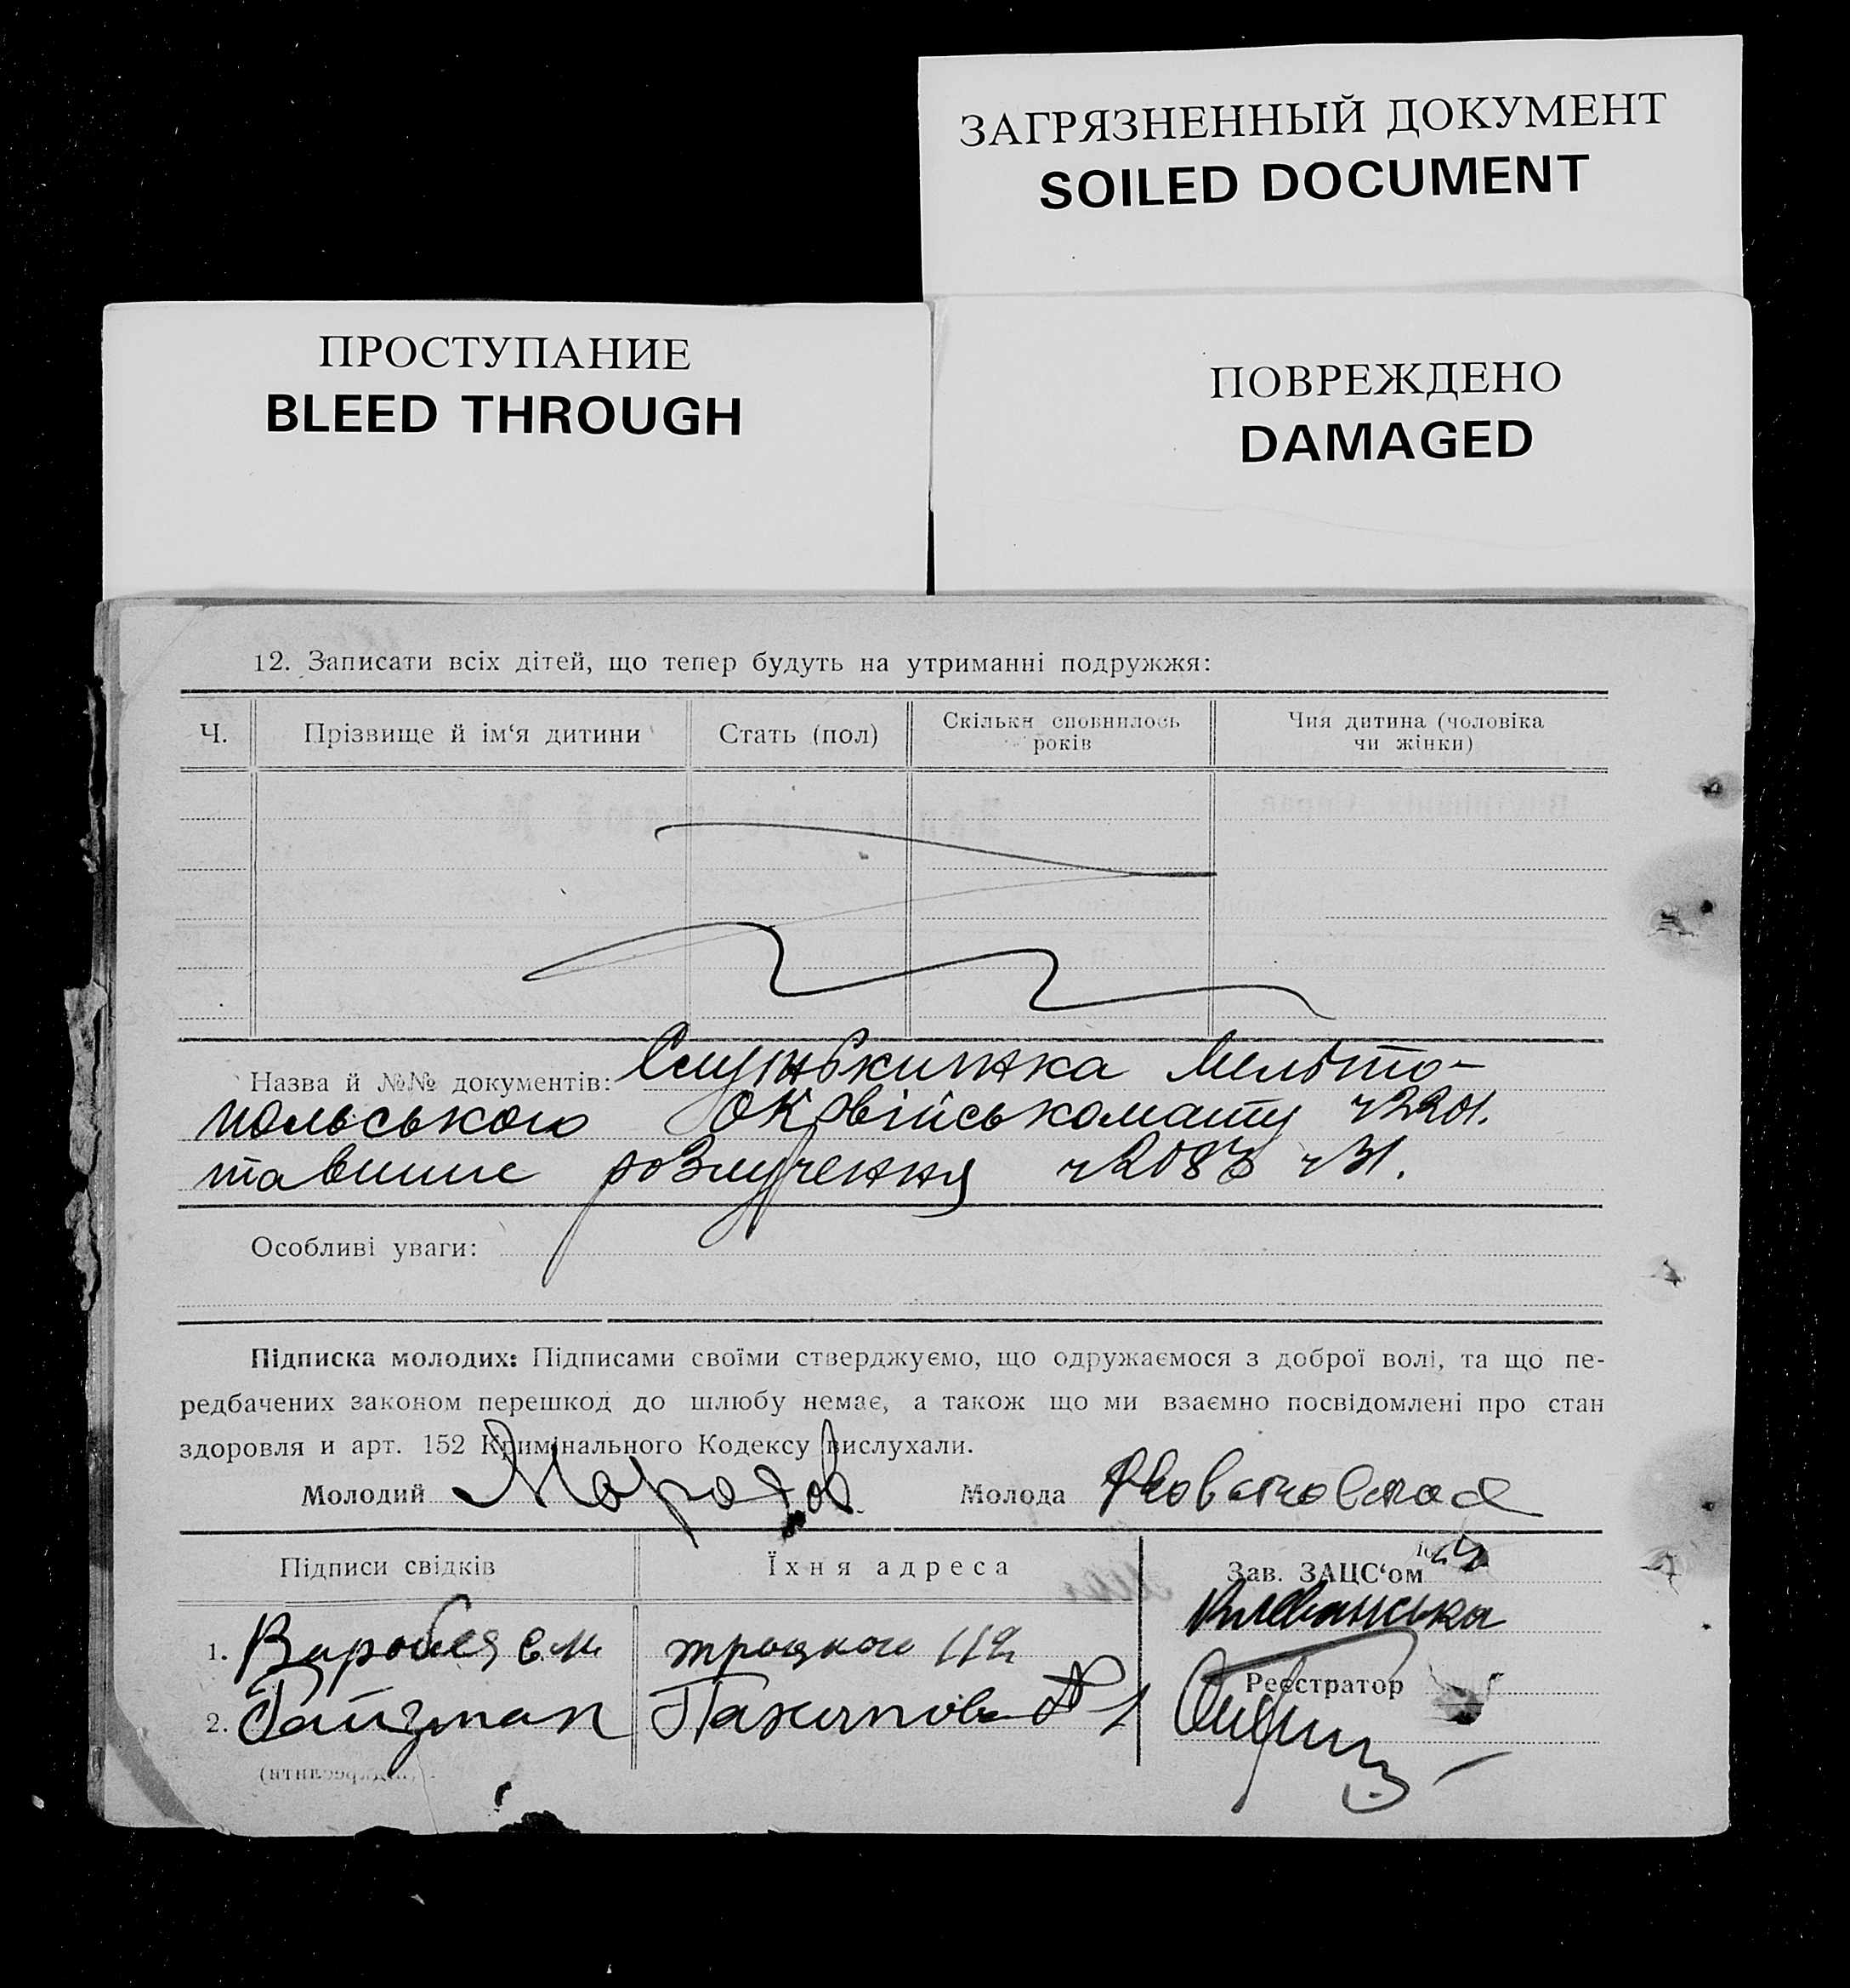 ЗАГРЯЗНЕННЫЙ ДОКУМЕНТ
SOILED DOCUMENT
ПРОСТУПАНИЕ
BLEED THROUGH
ПОВРЕЖДЕНО
DAMAGED
12. Записати всіх дітей, що тепер будуть на утриманні подружжя:
Ч.
Прізвище й ім‘я дитини
Стать (пол)
Скільки сповнилось
років
Чия дитина (чоловіка
чи жінки)
Назва й №№ документів: Мельто-
польського Окрвійськомату ч 2201.
розлучення ч 31.
Особливі уваги:
Підписка молодих: Підписами своїми стверджуємо, що одружаємося з доброї волі, та що пе-
редбачених законом перешкод до шлюбу немає, а також що ми взаємно посвідомлені про стан
здоровля и арт. 152 Кримінального Кодексу вислухали.
Молодий
Молода
Підписи свідків
Їхня адреса
Зав. ЗАЦС‘ом
1.
2. Гайзман
Реєстратор